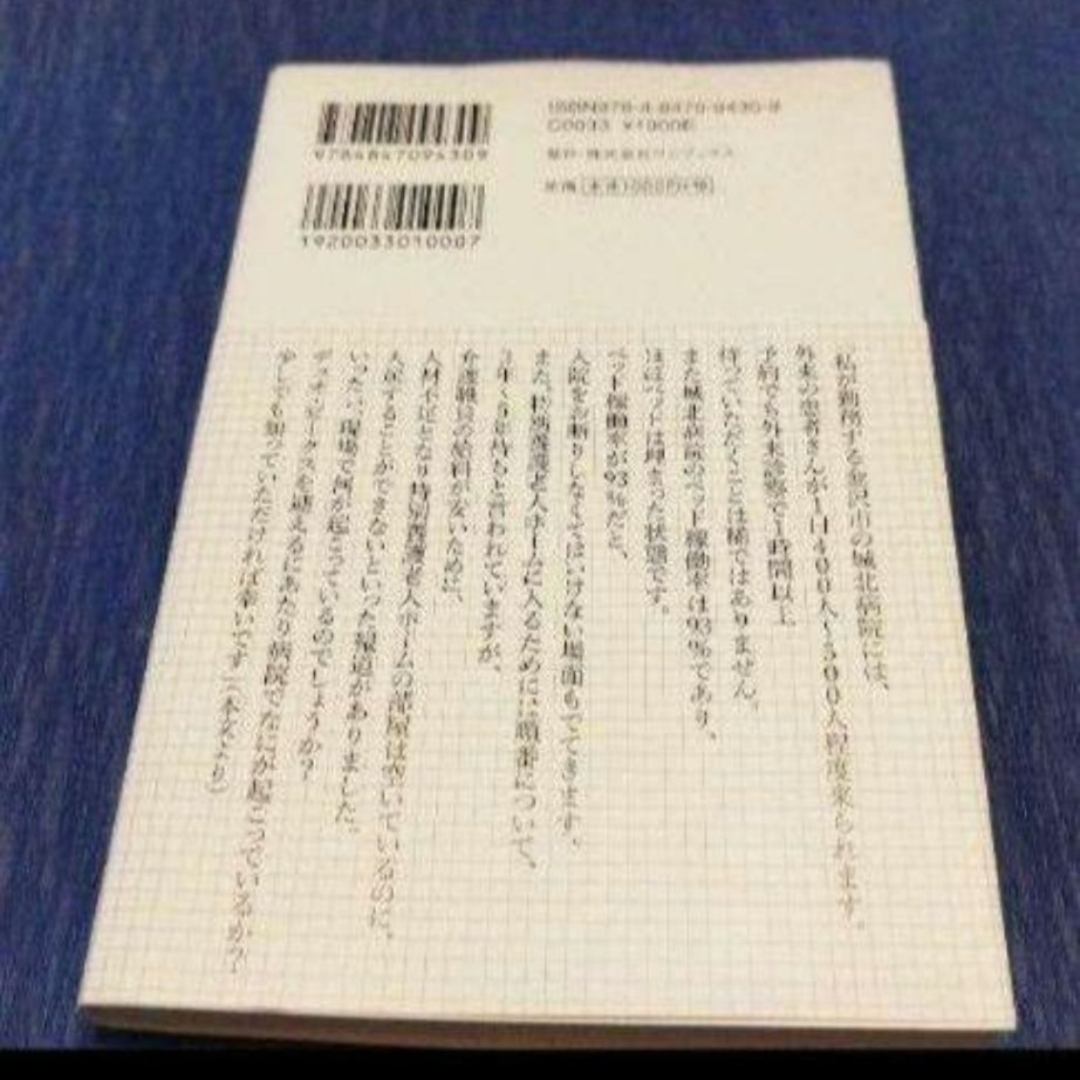 9784847094309
ISBN978-4-8470-9430-9
C0033 ¥1000E
1920033010007
発行・株式会社ワニブックス
定価 本体1000円+税
私が勤務する金沢市の城北病院には、
外来の患者さんが1日400人~500人程度来られます。
予約でも外来診察で1時間以上
待っていただくことは稀ではありません。
また城北病院のベッド稼働率は93%であり、
ほぼベッドは埋まった状態です。
ベッド稼働率が93%だと、
入院をお断りしなくてはいけない場面もでてきます。
また、特別養護老人ホームに入るためには順番について、
3年くらい待つと言われていますが、
介護職員の給料が安いために、
人材不足となり特別養護老人ホームの部屋は空いているのに、
入所することができないといった報道がありました。
いったい現場で何が起こっているのでしょうか?
少しでも知っていただければ幸いです(本文より)